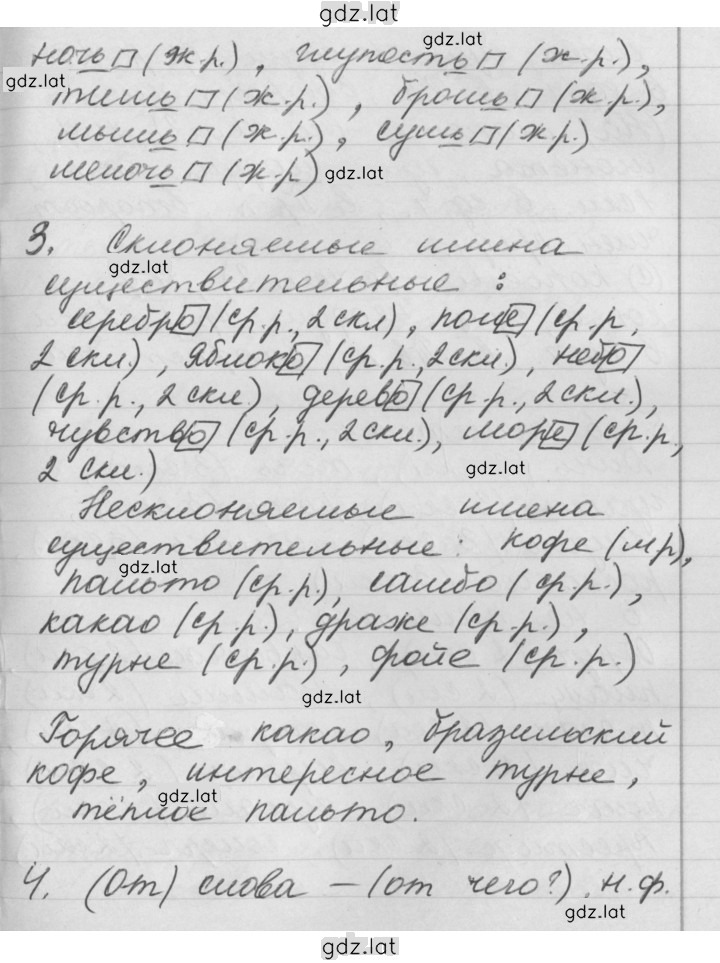 gdz.lat
ночь (ж.р.), глупость (ж.р.),
gdz.lat
gdz.lat
тишь (ж.р.), брошь (ж.р.),
мышь (ж.р.), сушь (ж.р.)
мелочь (ж.р.)
gdz.lat
3. Склоняемые имена
gdz.lat
существительные:
серебро (ср.р., 2 скл), поле (ср.р.,
2 скл.), яблоко (ср.р., 2 скл.), небо
(ср.р., 2 скл.), дерево (ср.р., 2 скл.),
чувство (ср.р., 2 скл.), море (ср.р.,
2 скл.)
gdz.lat
Несклоняемые имена
существительные: кофе (м.р),
gdz.lat
пальто (ср.р.), самбо (ср.р.),
какао (ср.р.), драже (ср.р.),
турне (ср.р.), фойе (ср.р.)
gdz.lat
Горячее какао, бразильский
кофе, интересное турне,
gdz.lat
тёплое пальто.
4. (От) слова – (от чего?), н.ф.
gdz.lat
gdz.lat